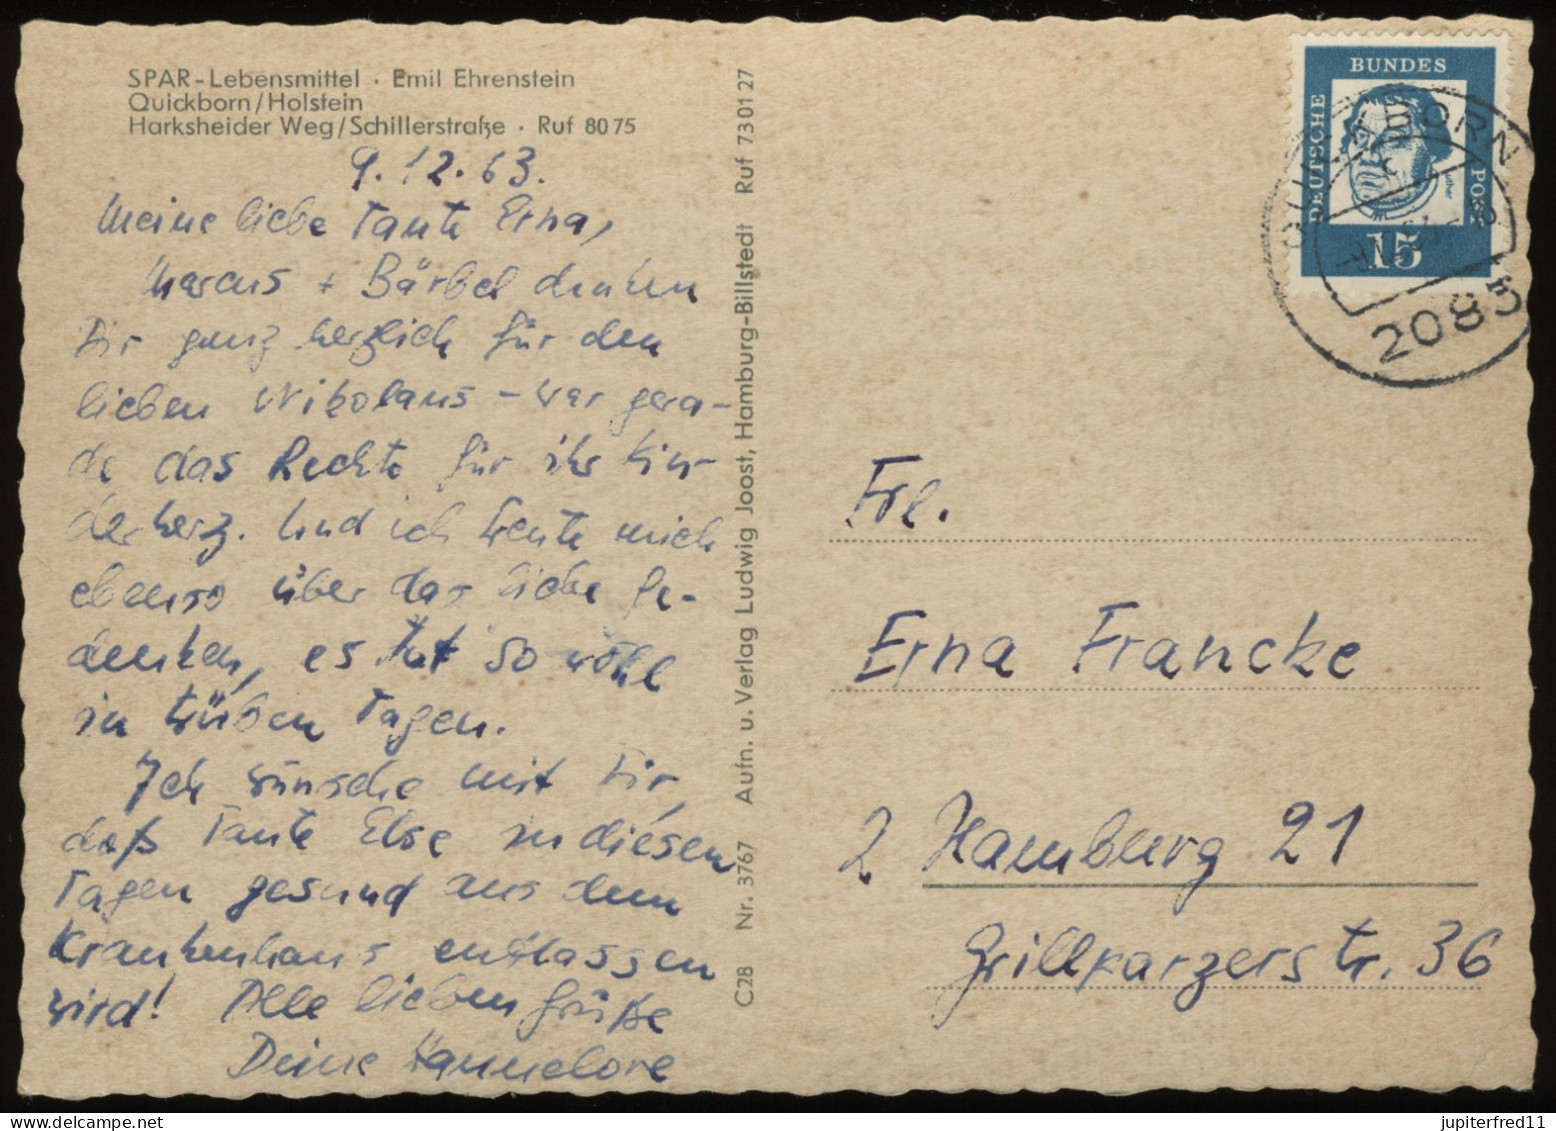 SPAR-Lebensmittel · Emil Ehrenstein
Quickborn/Holstein
Harksheider Weg/Schillerstraße · Ruf 8075
9.12.63.
Meine liebe Tante Erna,
Marcus + Bärbel danken
Dir ganz herzlich für den
lieben Nikolaus - war gera-
de das Rechte für ihr Kin-
derherz. Und ich freute mich
ebenso über das liebe Ge-
denken, es tut so wohl
in trüben Tagen.
Ich wünsche mit Dir,
daß Tante Else in diesen
Tagen gesund aus dem
Krankenhaus entlassen
wird! Alle lieben Grüße
Deine Hannelore
C28 Nr. 3767 Aufn. u. Verlag Ludwig Joost, Hamburg-Billstedt Ruf 730127
DEUTSCHE
BUNDES
POST
Luther
15
QUICKBORN
2085
Frl.
Erna Francke
2 Hamburg 21
Grillparzerstr. 36
jupiterfred11